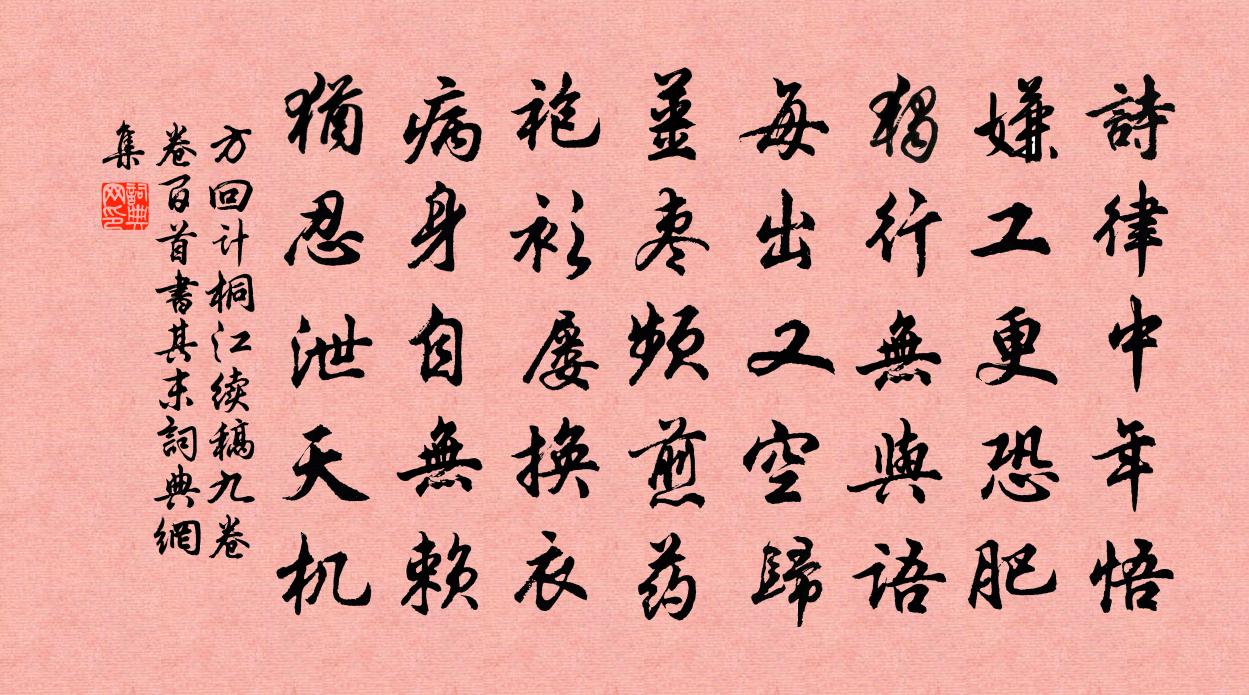 詩律中年悟
嫌工更恐肥
獨行無與語
每出又空歸
薑枣频煎药
袍衫屡換衣
病身自無赖
猶忍泄天机
方回计桐江续稿九卷
卷百首書其末詞典網
集
詞典网印